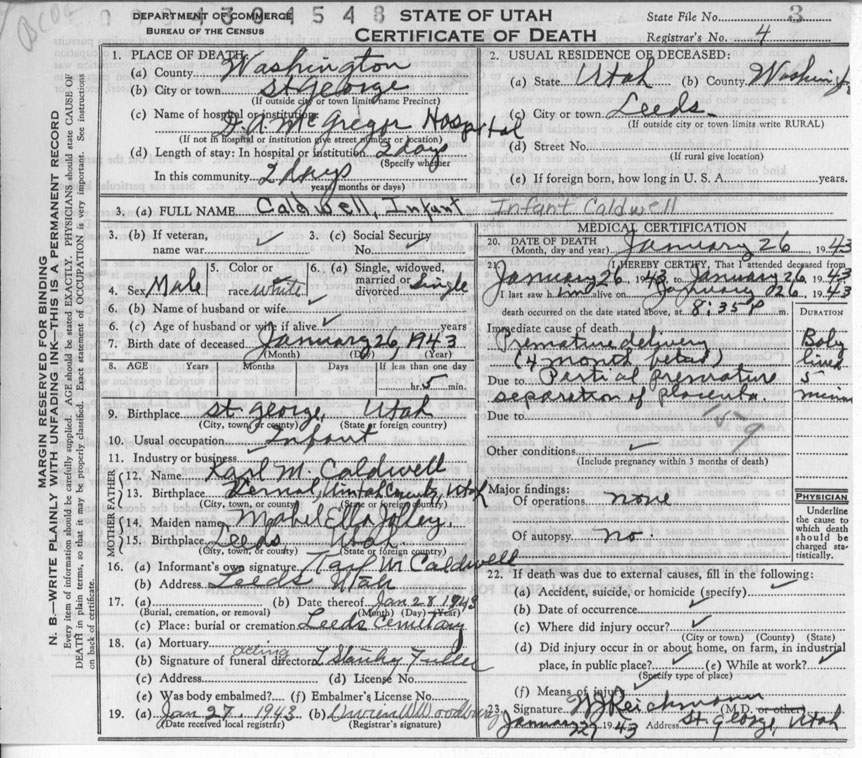 DEPARTMENT OF COMMERCE
BUREAU OF THE CENSUS
STATE OF UTAH
CERTIFICATE OF DEATH
State File No. 3
Registrar's No. 4
MARGIN RESERVED FOR BINDING
N. B.—WRITE PLAINLY WITH UNFADING INK—THIS IS A PERMANENT RECORD
Every item of information should be carefully supplied. AGE should be stated EXACTLY. PHYSICIANS should state CAUSE OF
DEATH in plain terms, so that it may be properly classified. Exact statement of OCCUPATION is very important. See instructions
on back of certificate.
1. PLACE OF DEATH:
(a) County Washington
(b) City or town St George
(If outside city or town limit name Precinct)
(c) Name of hospital or institution: D. A. McGregor Hospital
(If not in hospital or institution give street number or location)
(d) Length of stay: In hospital or institution 2 days
(Specify whether
In this community 2 days
years, months or days)
2. USUAL RESIDENCE OF DECEASED:
(a) State Utah (b) County
(c) City or town Leeds
(If outside city or town limits write RURAL)
(d) Street No.
(If rural give location)
(e) If foreign born, how long in U. S. A. years.
3. (a) FULL NAME Caldwell, Infant Infant Caldwell
3. (b) If veteran, name war ✓
3. (c) Social Security No. ✓
4. Sex Male
5. Color or race White
6. (a) Single, widowed, married or divorced Single
6. (b) Name of husband or wife ✓
6. (c) Age of husband or wife if alive ✓ years
7. Birth date of deceased January 26, 1943
(Month) (Day) (Year)
8. AGE Years Months Days If less than one day
hr. 5 min.
9. Birthplace St George, Utah
(City, town, or county) (State or foreign country)
10. Usual occupation Infant
11. Industry or business ✓
FATHER
12. Name Karl M. Caldwell
13. Birthplace Vernal, Uintah County, Utah
(City, town, or county) (State or foreign country)
MOTHER
14. Maiden name Mabel Ella Jolley
15. Birthplace Leeds Utah
(City, town, or county) (State or foreign country)
16. (a) Informant's own signature Karl M Caldwell
(b) Address Leeds Utah
17. (a) (b) Date thereof Jan 28 1943
(Burial, cremation, or removal) (Month) (Day) (Year)
(c) Place: burial or cremation Leeds Cemetary
18. (a) Mortuary
acting
(b) Signature of funeral director L Stanley Fuller
(c) Address (d) License No.
(e) Was body embalmed? (f) Embalmer's License No.
19. (a) Jan 27, 1943 (b) Woodbury
(Date received local registrar) (Registrar's signature)
MEDICAL CERTIFICATION
20. DATE OF DEATH
(Month, day and year) January 26, 1943
21. I HEREBY CERTIFY, That I attended deceased from
January 26, 1943, to January 26, 1943
I last saw him alive on January 26, 1943
death occurred on the date stated above, at 8:35 P m.
DURATION
Immediate cause of death
Premature delivery
(4 month
Baby
lived
5
Due to Partial premature
separation of placenta.
Due to
159
Other conditions ✓
(Include pregnancy within 3 months of death)
Major findings:
Of operations none
Of autopsy no.
PHYSICIAN
Underline
the cause to
which death
should be
charged sta-
tistically.
22. If death was due to external causes, fill in the following:
(a) Accident, suicide, or homicide (specify) ✓
(b) Date of occurrence ✓
(c) Where did injury occur? ✓
(City or town) (County) (State)
(d) Did injury occur in or about home, on farm, in industrial
place, in public place? ✓ (e) While at work? ✓
(Specify type of place)
(f) Means of injury ✓
23. Signature Reichmann (M.D. or other)
January 1943 Address St George, Utah